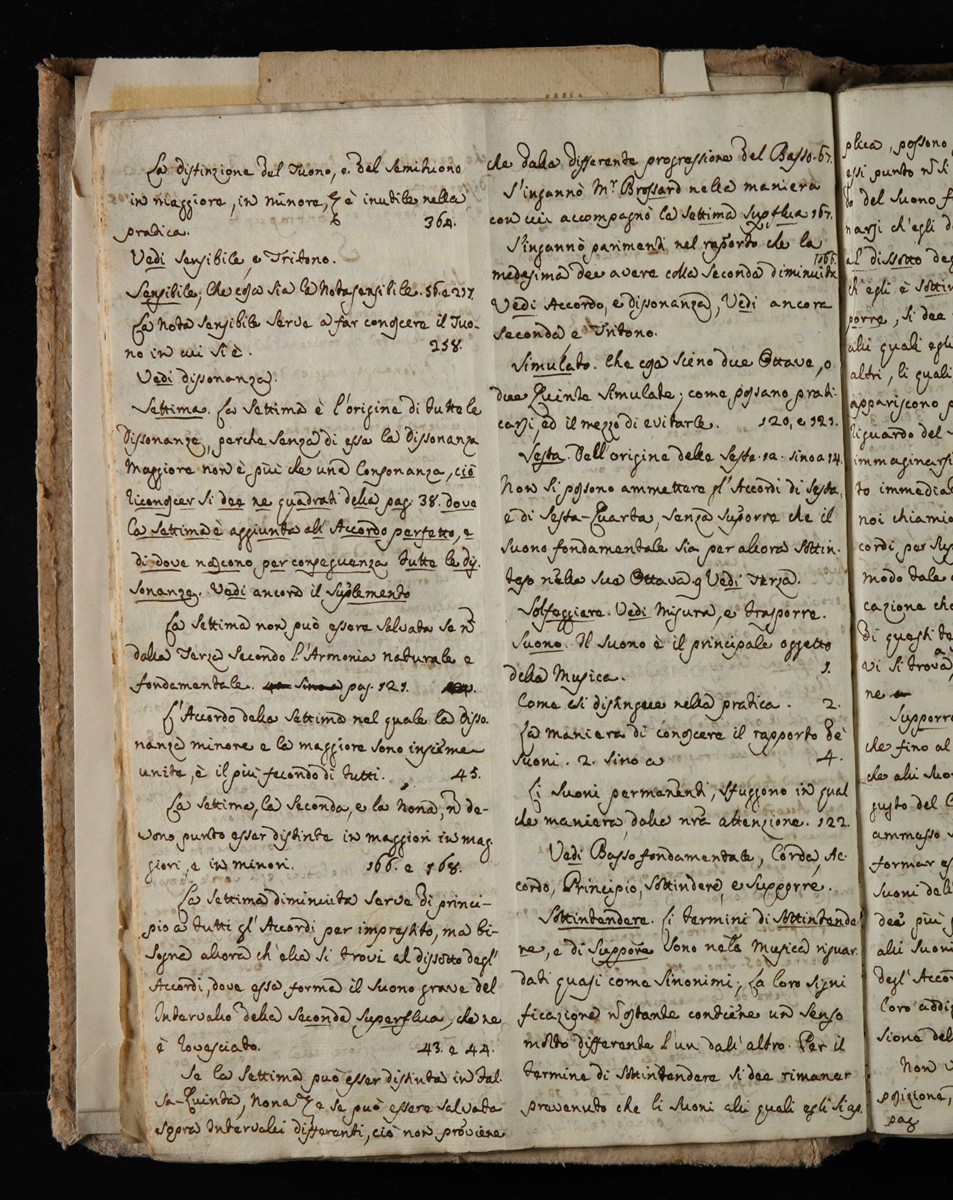 La distinzione del Tuono, e del Semituono
in maggiore, in minore, &c è inutile nella
pratica. 364.
Vedi Sensibile, e Tritono.
Sensibile; Che cosa sia la Nota sensibile. 56. e 257
La Nota Sensibile serve a far conoscere il Tuo-
no in cui si è. 258.
Vedi dissonanza.
Settima. La Settima è l'origine di tutte le
Dissonanze, perche senza di essa la dissonanza
Maggiore non è più che una Consonanza, ciò
riconoscer si dee ne quadrati della pag. 38. dove
la settima è aggiunta all'Accordo perfetto, e
di dove nascono per conseguenza tutte le dis-
sonanze. Vedi ancora il Suplemento
La Settima non può essere salvata se n̄
dalla Terza secondo l'Armonia naturale e
fondamentale. pag. 121.
L'Accordo della Settima nel quale la disso-
nanza minore e la maggiore sono insieme
unite, è il più fecondo di tutti. 45.
La Settima, la Seconda, e la Nona, n̄ de-
vono punto esser distinte in maggiori in mag
giori, e in minori. 166. e 168.
La Settima diminuita serve di princi-
pio a tutti gl'Accordi per imprestito, ma bi-
sogna allora ch'ella si trovi al dissotto degl'
Accordi, dove essa forma il Suono grave del
Intervallo della Seconda Superflua, che ne
è rovesciato. 43. e 44.
Se la Settima può esser distinta in fal-
sa-Quinta, Nona &c e se può essere salvata
sopra Intervalli differenti, ciò non proviene
che dalla differente progressione del Basso. 67.
S'ingannò Mr. Brossard nella maniera
con cui accompagnò la Settima Supflua 167.
S'ingannò parimenti nel rapporto che la
medesima dee avere colla Seconda diminuita 166.
Vedi Accordo, e dissonanza, Vedi ancora
Seconda e Tritono.
Simulato. Che cosa sieno due Ottave, o
due Quinte simulate; come possano prati-
carsi, ed il mezzo di evitarle. 120, e 121.
Sesta. Dell'origine delle Seste. 12. sino a 14.
Non si possono ammettere gl'Accordi di Sesta,
e di Sesta-Quarta, senza suporre che il
Suono fondamentale sia per allora sottin-
teso nella sua Ottava Vedi Terza.
Solfeggiare. Vedi Misura, e trasporre.
Suono. Il Suono è il principale oggetto
della Musica. 1.
Come si distingue nella pratica. 2.
La maniera di conoscere il rapporto de
Suoni. 2. sino a 4.
Li Suoni permanenti, sfuggono in qual
che maniera, dalla nrã attenzione. 122.
Vedi Basso fondamentale, Corda, Ac-
cordo, Principio, Sottindere, e Supporre.
Sottintendere. Li termini di Sottintende-
re, e di Supporre sono nella Musica riguar-
dati quasi come sinonimi; La loro signi
ficazione n̄ostante contiene un senso
molto differente l'un dall'altro. Per il
termine di Sottintendere si dee rimaner
prevenuto che li Suoni alli quali egli si ap.
plica, possono
essi punto n̄ si
del Suono f
narsi ch'egli d
al dissotto deg
ch'egli è Sottin
porre, si dee
alli quali egli
altri, li quali
appariscono p
riguardo del
immaginarsi
to immedia
noi chiamia
cordi per Sup
modo tale
cazione che
Di questi te
vi si trova
ne
Supporre
che fino al
che alli Suo
gusto del
ammesso
formar es
Suoni dell
dea più
alli Suoni
degl'Accor
loro addi
sione del
Non
posizione,
pag